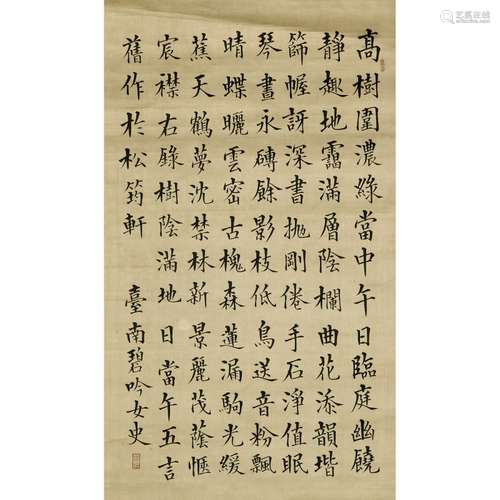 髙樹圍濃綠當中午日臨庭幽饒
靜趣地靄滿層陰欄曲花添韻堦
篩幄訝深書拋剛倦手石淨值眠
琴晝永磚餘影枝低鳥送音粉飄
晴蝶曬雲密古槐森蓮漏駒光緩
蕉天鶴夢沈禁林新景麗茂蔭愜
宸襟右錄樹陰滿地日當午五言
舊作於松筠軒 臺南碧吟女史